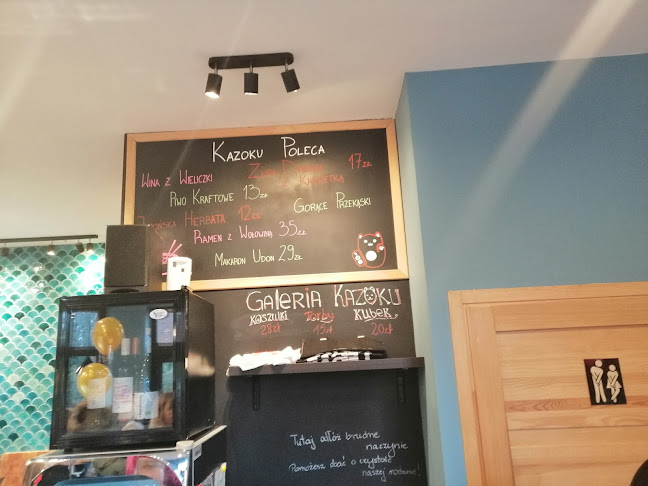 Kazoku Poleca
Wina z Wieliczki
Zupa 17zł
z Krewetką
Piwo Kraftowe 13zł
Gorące Przekąski
Japońska Herbata 12zł
Ramen z Wołowiną 35zł
Makaron Udon 29zł
Galeria Kazoku
Koszulki Torby Kubek
28zł 15zł 20zł
Tutaj odłóż brudne
naczynie
Pomożesz dbać o czystość
naszej restauracji!